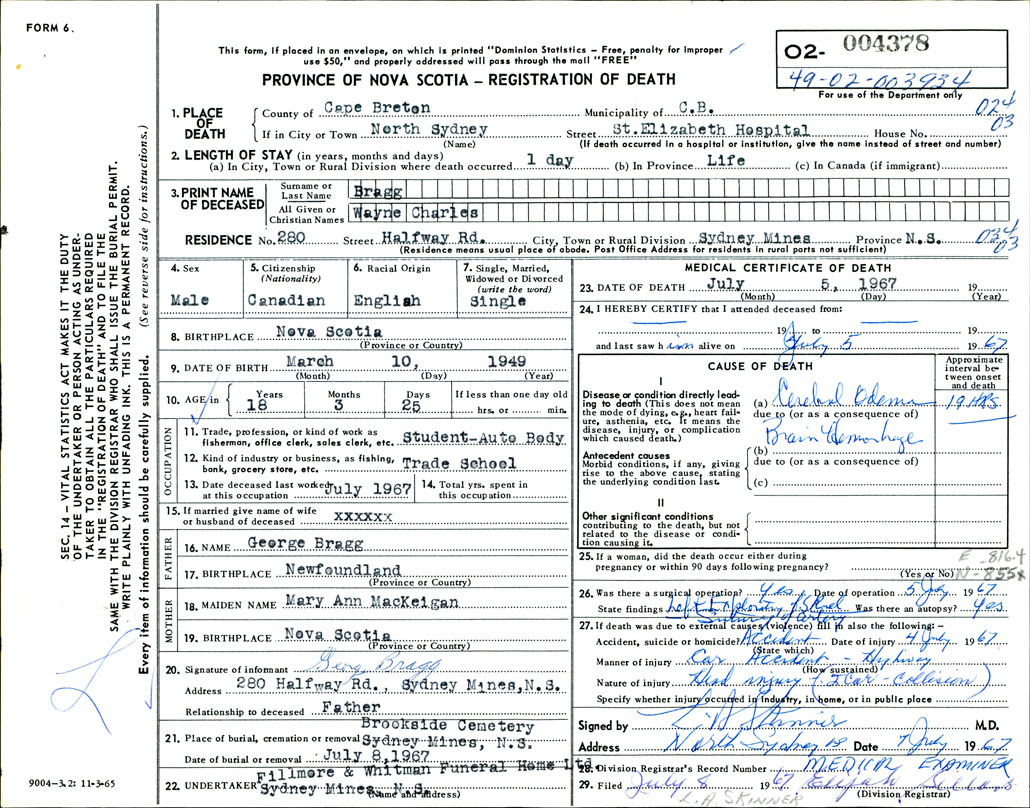 FORM 6.
This form, if placed in an envelope, on which is printed "Dominion Statistics – Free, penalty for improper
use $50," and properly addressed will pass through the mail "FREE"
PROVINCE OF NOVA SCOTIA – REGISTRATION OF DEATH
O2- 004378
49-02-003934
For use of the Department only
024
03
1. PLACE OF DEATH
County of Cape Breton Municipality of C.B.
If in City or Town North Sydney Street St.Elizabeth Hospital House No.
(Name) (If death occurred in a hospital or institution, give the name instead of street and number)
2. LENGTH OF STAY (in years, months and days)
(a) In City, Town or Rural Division where death occurred 1 day (b) In Province Life (c) In Canada (if immigrant)
3. PRINT NAME OF DECEASED
Surname or Last Name Bragg
All Given or Christian Names Wayne Charles
RESIDENCE No. 280 Street Halfway Rd. City, Town or Rural Division Sydney Mines Province N.S.
(Residence means usual place of abode. Post Office Address for residents in rural parts not sufficient)
034
03
SEC. 14 – VITAL STATISTICS ACT MAKES IT THE DUTY
OF THE UNDERTAKER OR PERSON ACTING AS UNDER-
TAKER TO OBTAIN ALL THE PARTICULARS REQUIRED
IN THE "REGISTRATION OF DEATH" AND TO FILE THE
SAME WITH THE DIVISION REGISTRAR WHO SHALL ISSUE THE BURIAL PERMIT.
WRITE PLAINLY WITH UNFADING INK. THIS IS A PERMANENT RECORD.
Every item of information should be carefully supplied. (See reverse side for instructions.)
4. Sex
Male
5. Citizenship
(Nationality)
Canadian
6. Racial Origin
English
7. Single, Married,
Widowed or Divorced
(write the word)
Single
8. BIRTHPLACE Nova Scotia
(Province or Country)
9. DATE OF BIRTH March 10, 1949
(Month) (Day) (Year)
10. AGE in
Years Months Days If less than one day old
18 3 25 hrs. or min.
OCCUPATION
11. Trade, profession, or kind of work as
fisherman, office clerk, sales clerk, etc. Student-Auto Body
12. Kind of industry or business, as fishing,
bank, grocery store, etc. Trade School
13. Date deceased last worked
at this occupation July 1967
14. Total yrs. spent in
this occupation
15. If married give name of wife
or husband of deceased xxxxxx
FATHER
16. NAME George Bragg
17. BIRTHPLACE Newfoundland
(Province or Country)
MOTHER
18. MAIDEN NAME Mary Ann MacKeigan
19. BIRTHPLACE Nova Scotia
(Province or Country)
20. Signature of informant Georg Bragg
Address 280 Halfway Rd., Sydney Mines,N.S.
Relationship to deceased Father
Brookside Cemetery
21. Place of burial, cremation or removal Sydney Mines, N.S.
Date of burial or removal July 8,1967
Fillmore & Whitman Funeral Home Ltd.
22. UNDERTAKER Sydney Mines, N.S.
(Name and address)
9004–3.2: 11-3-65
MEDICAL CERTIFICATE OF DEATH
23. DATE OF DEATH July 5, 1967 19
(Month) (Day) (Year)
24. I HEREBY CERTIFY that I attended deceased from:
19 to 19
and last saw him alive on July 5 1967
CAUSE OF DEATH
Approximate
interval be-
tween onset
and death
I
Disease or condition directly lead-
ing to death (This does not mean
the mode of dying, e.g., heart fail-
ure, asthenia, etc. It means the
disease, injury, or complication
which caused death.)
(a) Cerebral Odema 19 HRS
due to (or as a consequence of)
Brain Hemorrhage
Antecedent causes
Morbid conditions, if any, giving
rise to the above cause, stating
the underlying condition last.
(b)
due to (or as a consequence of)
(c)
II
Other significant conditions
contributing to the death, but not
related to the disease or condi-
tion causing it.
25. If a woman, did the death occur either during
pregnancy or within 90 days following pregnancy?
(Yes or No)
E 816.4
N-855x
26. Was there a surgical operation? Yes Date of operation 5 July 1967
State findings Left Exploratory of Skull Was there an autopsy? Yes
Suturing of artery
27. If death was due to external causes (violence) fill in also the following:–
Accident, suicide or homicide? Accident Date of injury 4 July 1967
(State which)
Manner of injury Car Accident – Highway
(How sustained)
Nature of injury Head injury (2 Car – Collision)
Specify whether injury occurred in industry, in home, or in public place
Signed by L. A. Skinner M.D.
Address North Sydney NS Date 7 July 1967
28. Division Registrar's Record Number MEDICAL EXAMINER
29. Filed July 8 1967 Elijah
(Division Registrar)
L.A. SKINNER